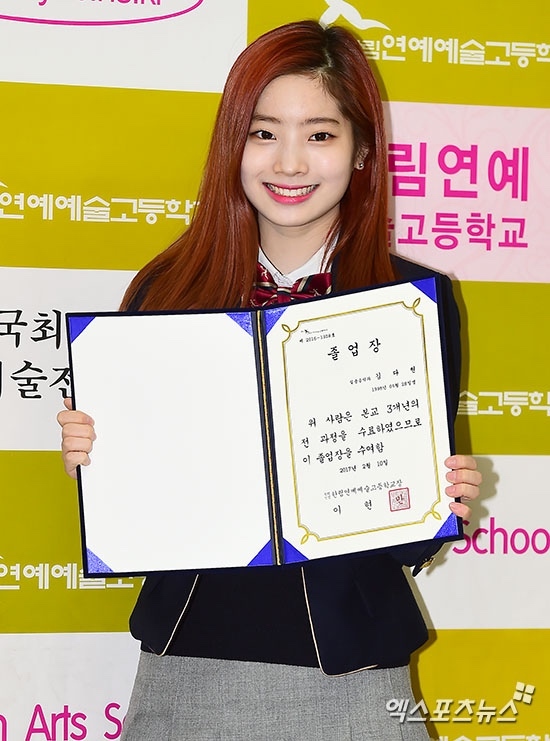 림연예예술고등학
연예예술고등학
림연예
술고등학교
국최
술전
제 2016-1308호
졸 업 장
실용음악과 김 다 현
1998년 05월 28일생
위 사람은 본교 3개년의
전 과정을 수료하였으므로
이 졸업장을 수여함
2017년 2월 10일
한림연예예술고등학교장
이 현 만
술고등학
School
연예예술고
예술고등학
Arts Sc
엑스포츠뉴스